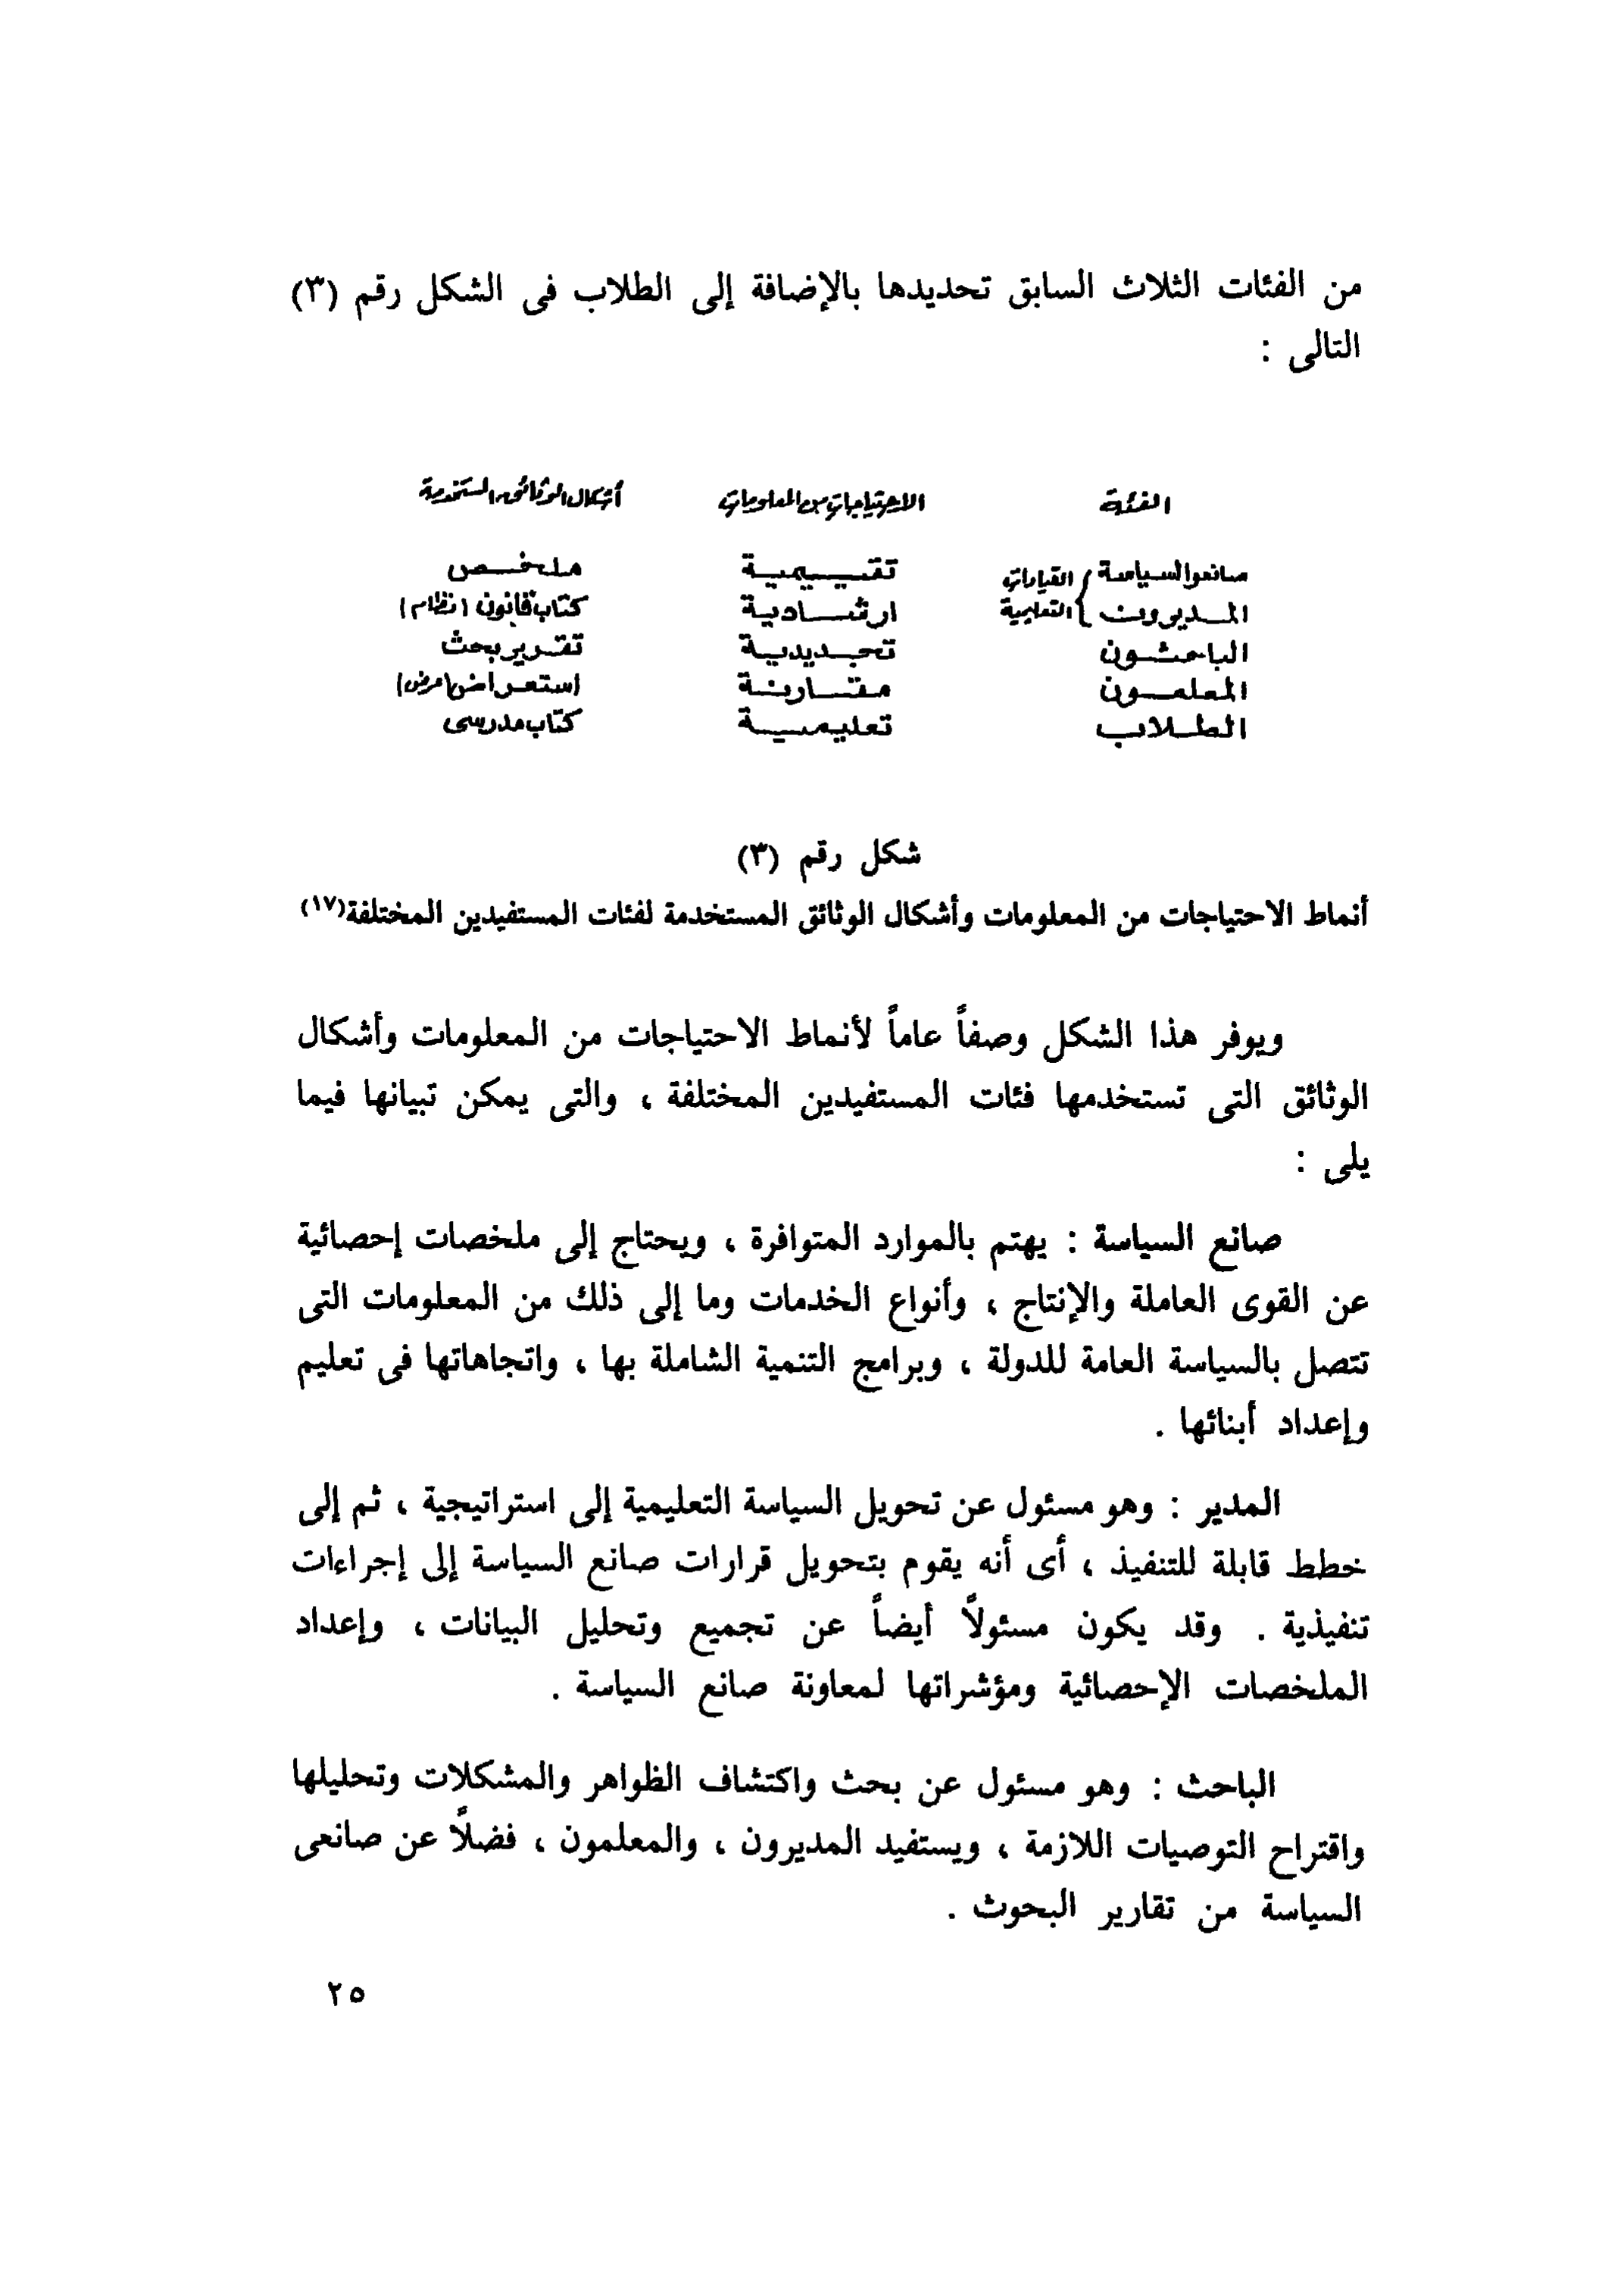 من الفئات الثلاث السابق تحديدها بالإضافة إلى الطلاب فى الشكل رقم (٣)
التالى :
الفئة الاحتياجات من المعلومات أشكال الوثائق المستخدمة
صانعوا السياسة } القيادات تقـــييمية ملخـــص
المــديرون } التعليمية ارشـــادية كتاب قانون (نظام)
الباحثــون تحــديدية تقــرير بحث
المعلمــون مقــارنة استعــراض (عرض)
الطــلاب تعليمــية كتاب مدرسى
شكل رقم (٣)
أنماط الاحتياجات من المعلومات وأشكال الوثائق المستخدمة لفئات المستفيدين المختلفة(١٧)
ويوفر هذا الشكل وصفاً عاماً لأنماط الاحتياجات من المعلومات وأشكال
الوثائق التى تستخدمها فئات المستفيدين المختلفة ، والتى يمكن تبيانها فيما
يلى :
صانع السياسة : يهتم بالموارد المتوافرة ، ويحتاج إلى ملخصات إحصائية
عن القوى العاملة والإنتاج ، وأنواع الخدمات وما إلى ذلك من المعلومات التى
تتصل بالسياسة العامة للدولة ، وبرامج التنمية الشاملة بها ، واتجاهاتها فى تعليم
وإعداد أبنائها .
المدير : وهو مسئول عن تحويل السياسة التعليمية إلى استراتيجية ، ثم إلى
خطط قابلة للتنفيذ ، أى أنه يقوم بتحويل قرارات صانع السياسة إلى إجراءات
تنفيذية . وقد يكون مسئولاً أيضاً عن تجميع وتحليل البيانات ، وإعداد
الملخصات الإحصائية ومؤشراتها لمعاونة صانع السياسة .
الباحث : وهو مسئول عن بحث واكتشاف الظواهر والمشكلات وتحليلها
واقتراح التوصيات اللازمة ، ويستفيد المديرون ، والمعلمون ، فضلاً عن صانعى
السياسة من تقارير البحوث .
٢٥